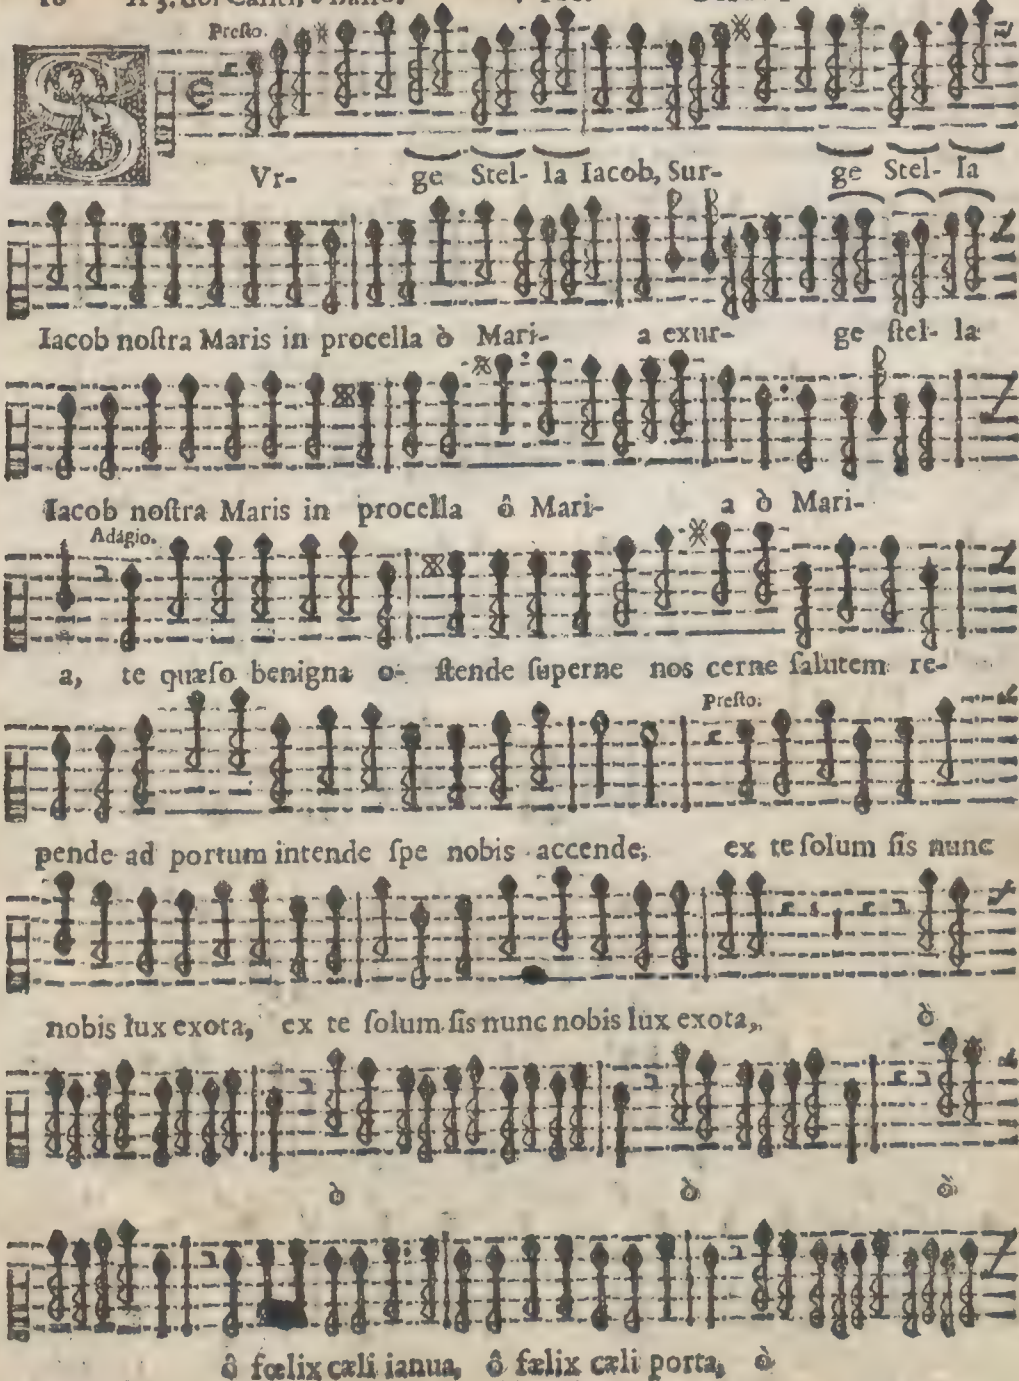 A 3. doi Canti, e Basso.
Presto.
S Vr- ge Stel- la Iacob, Sur- ge Stel- la
Iacob noſtra Maris in procella ò Mari- a exur- ge ſtel- la
Iacob noſtra Maris in procella ô Mari- a ò Mari-
Adagio.
a, te quæſo benigna o- ſtende ſuperne nos cerne ſalutem re-
Preſto.
pende ad portum intende ſpe nobis accende; ex te ſolum ſis nunc
nobis lux exota, ex te ſolum ſis nunc nobis lux exota, ò
ò ò ò
ô fœlix cæli ianua, ô fælix cæli porta, ò